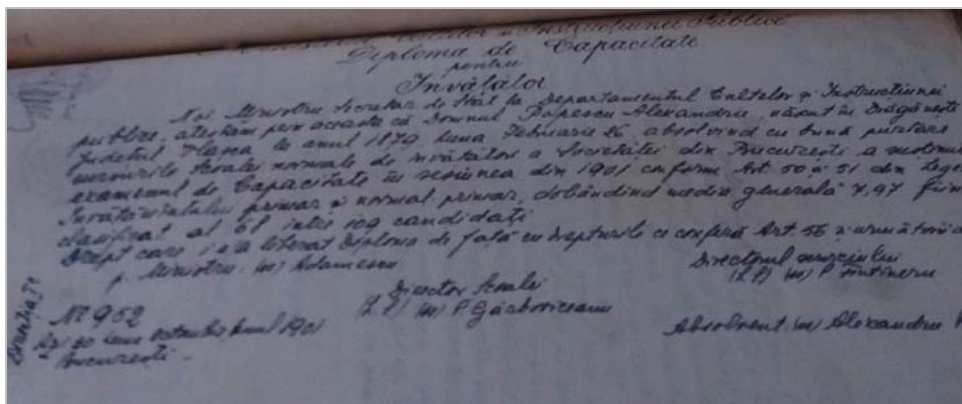 Cultelor și Instrucțiunei Publice
Diploma de Capacitate
pentru
Învățător
Noi Ministru Secretar de Stat la Departamentul Cultelor și Instrucțiunei
publice, atestăm prin aceasta că Domnul Popescu Alexandru, născut în Drăgănești
Județul Vlașca la anul 1879 luna Februarie 26, absolvind cu bună purtare
cursurile școalei normale de învățători a Societăței din București, a susținut
examenul de Capacitate în sesiunea din 1901 conform Art. 50 și 51 din Legea
Învățământului primar și normal primar, dobândind media generală 7,97 fiind
clasificat al 61 între 109 candidați
Drept care i s'a liberat Diploma de față cu drepturile ce conferă Art. 56 și următorii
p. Ministru (ss) Adamescu
Directorul serviciului
Director școalei
(L.S) (ss) P.
(L.S) (ss) P Gârboviceanu
Nº 952
20 luna octombrie anul 1901
București.
Absolvent (ss) Alexandru